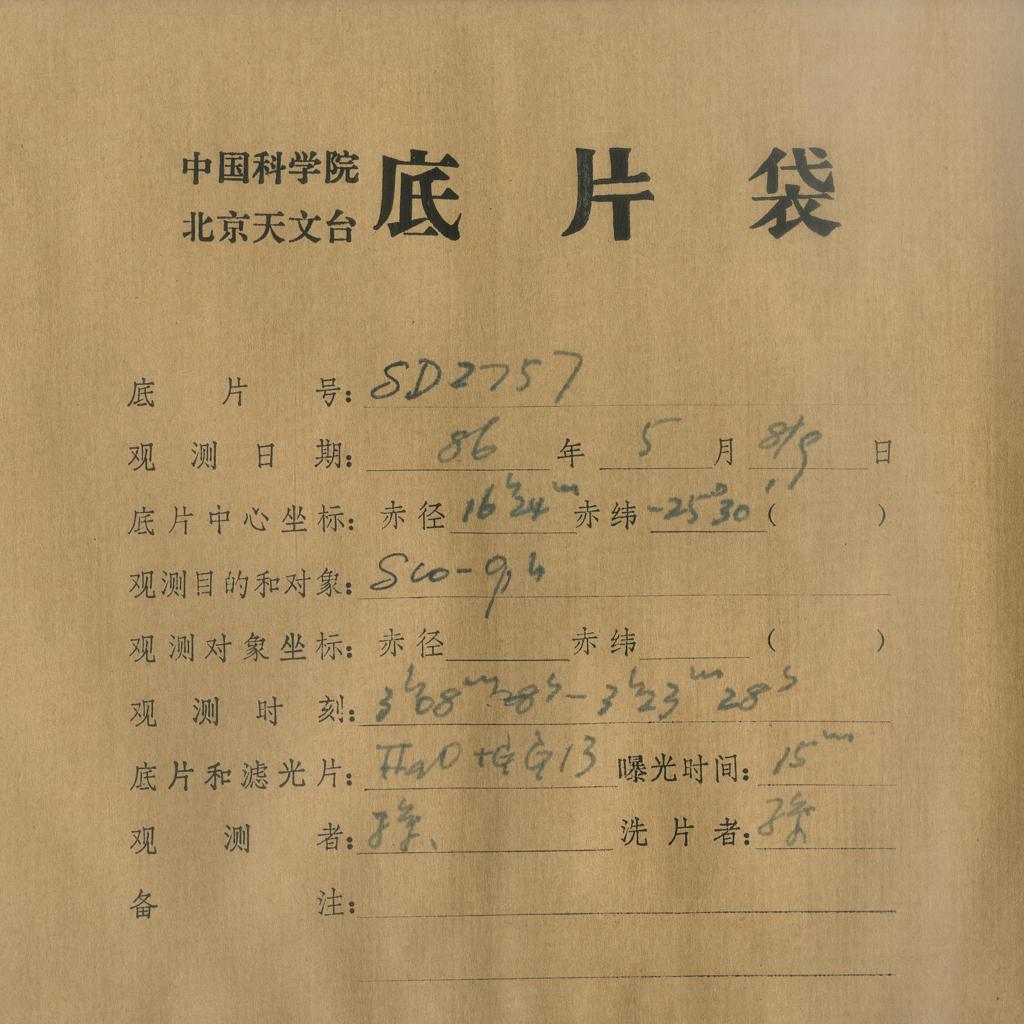 中国科学院
北京天文台
底片袋
底片号：SD2757
观测日期：86年5月8/9日
底片中心坐标：赤径16ʰ24ᵐ赤纬-25°30′（ ）
观测目的和对象：Sco-9,4
观测对象坐标：赤径 赤纬 （ ）
观测时刻：3ʰ08ᵐ28ˢ-3ʰ23ᵐ28ˢ
底片和滤光片：IIaO+GG13 曝光时间：15ᵐ
观测者： 洗片者：
备注：